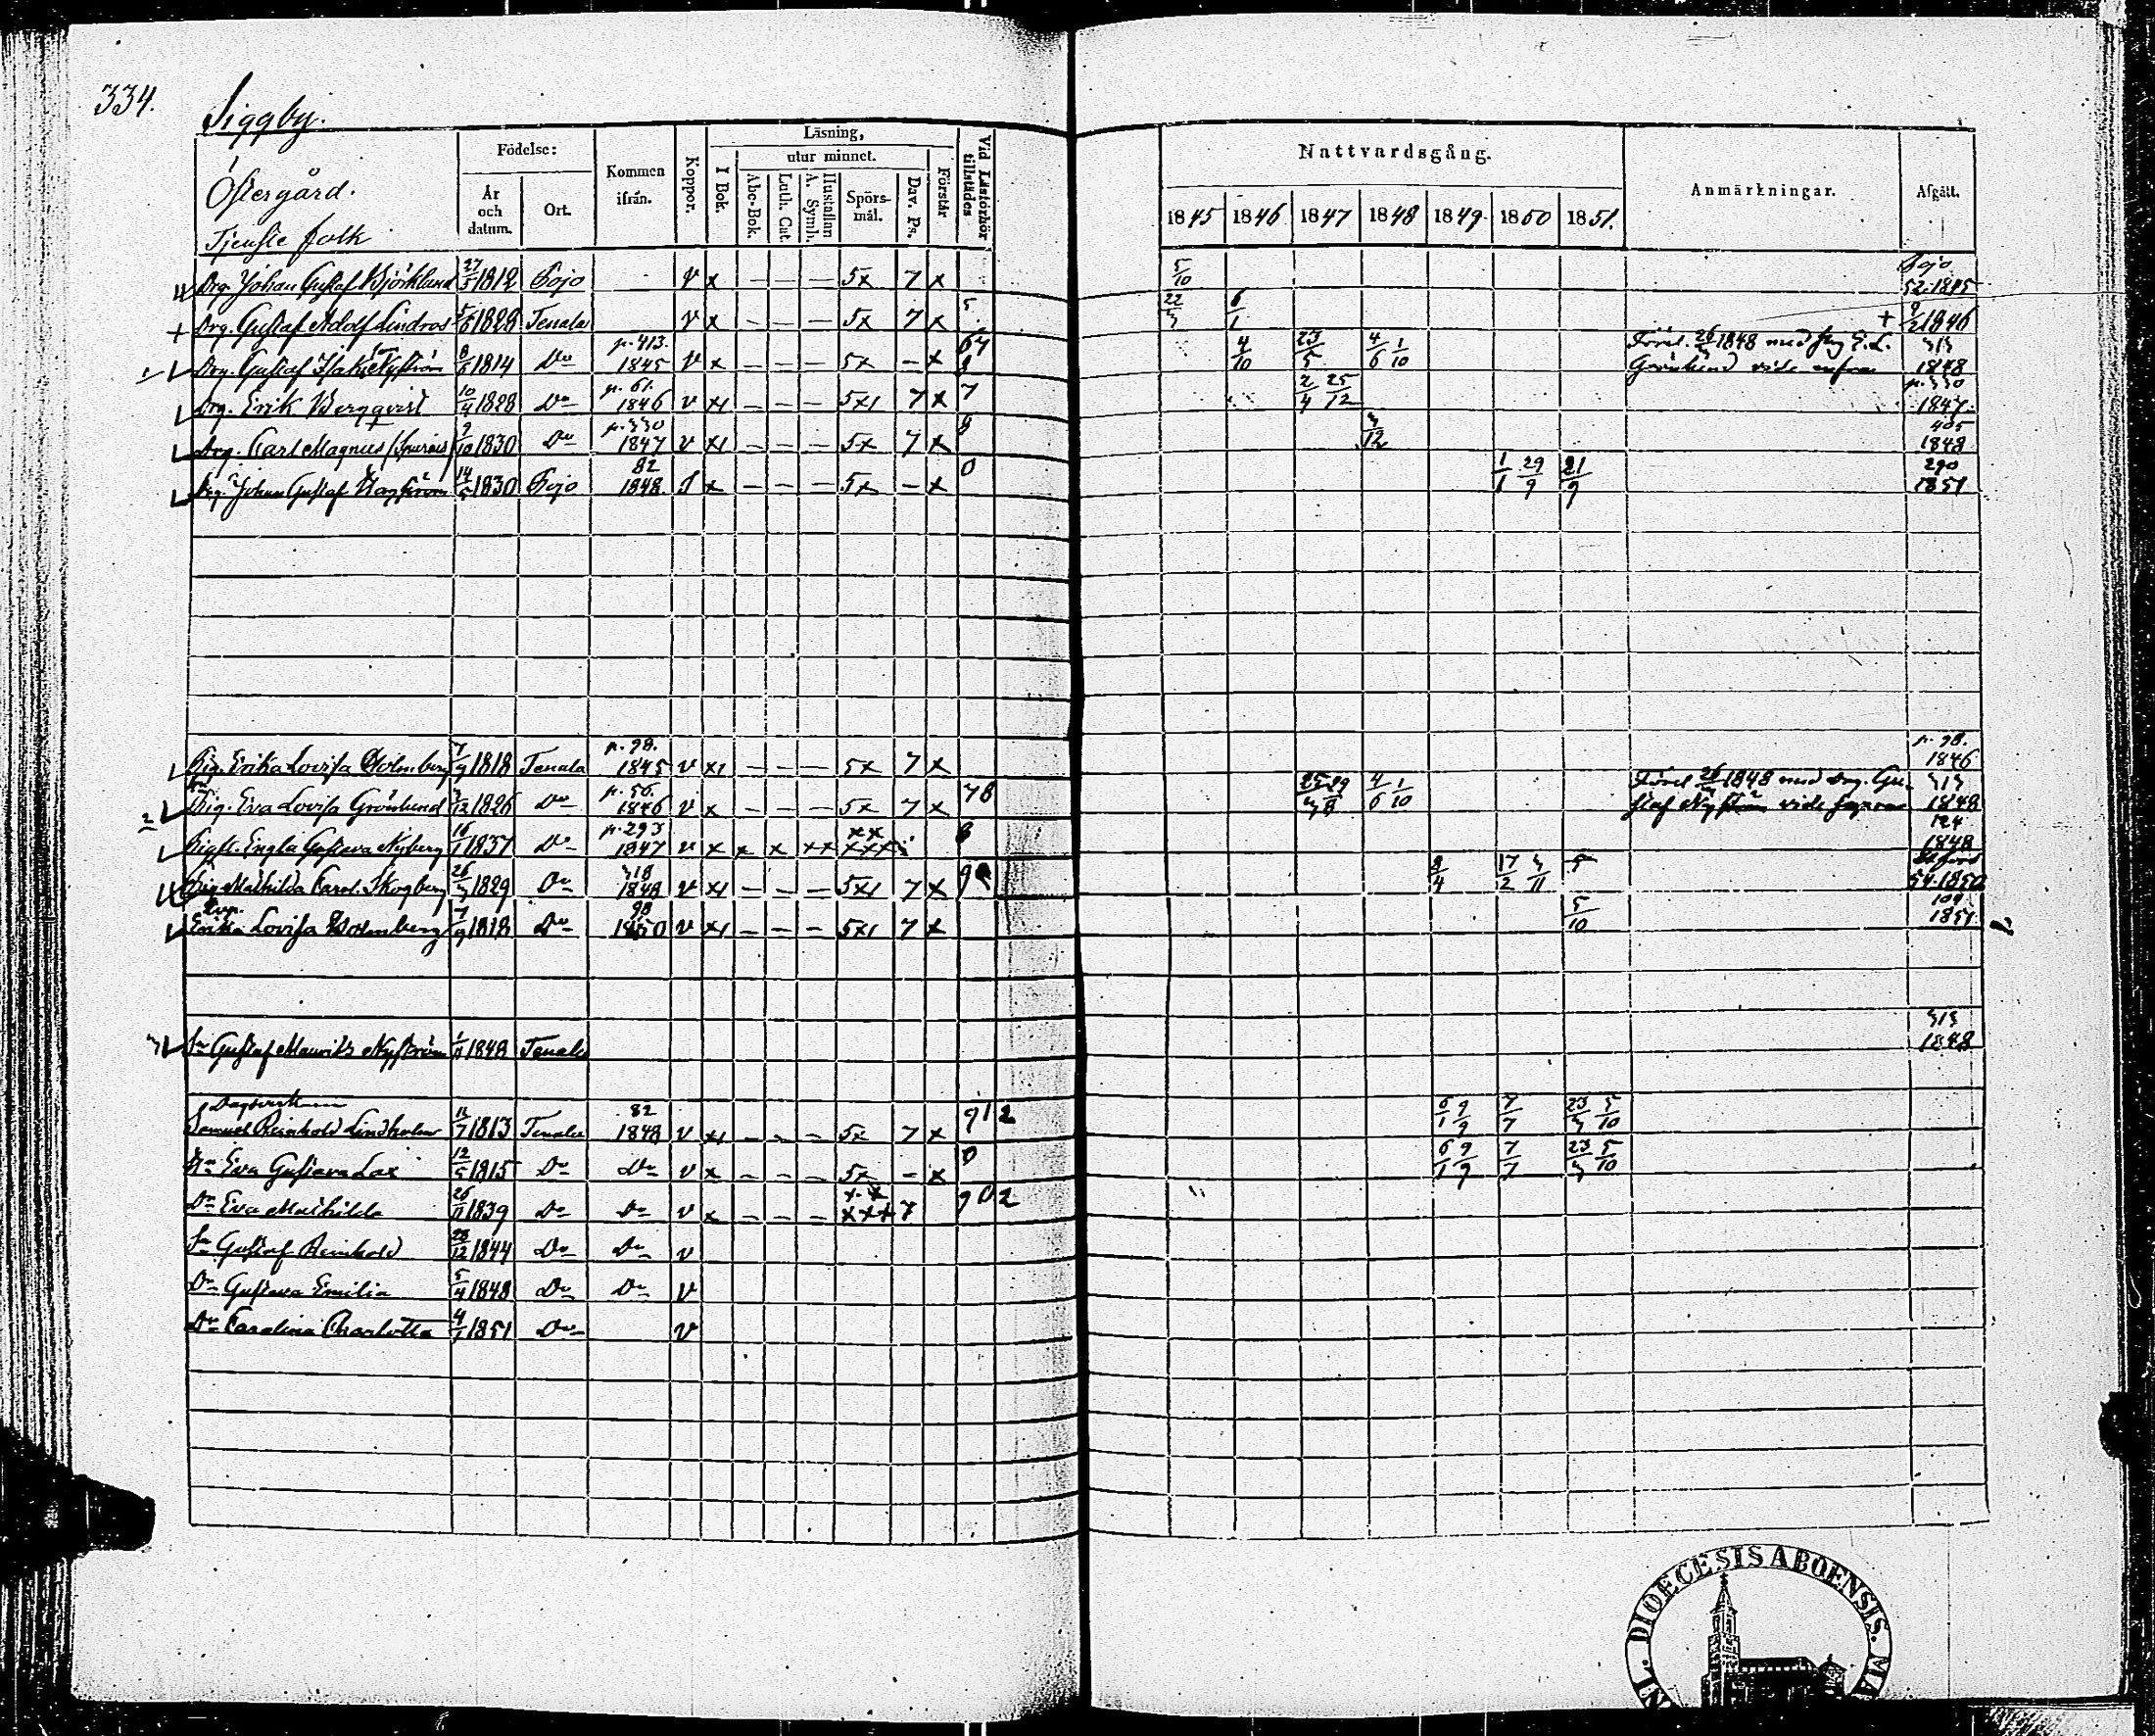 334.
Siggby.
Östergård.
Tjenste folk
Födelse:
År och datum.
Ort.
Kommen ifrån.
Koppor.
Läsning,
I Bok.
utur minnet.
Abc-Bok.
Luth. Cat.
A. Symb.
Hustaflan
Spörsmål.
Dav. Ps.
Förstår
Vid Läsförhör tillstädes
Nattvardsgång.
1845 1846 1847 1848 1849 1850 1851.
Anmärkningar.
Afgått.
Drg. Johan Gustaf Björklund 27/3 1812 Pojo — v x — — — 5x 7 x 5/10 Pojo 52. 1845
+ Drg. Gustaf Adolf Lindros 1828 Tenala v x — — — 5x 7 x 5 22/3 6/1 + 1846
1 Drg. Gustaf Nyström 1814 Do p. 413. 1845 v x — — — 5x — x 4/10 23/5 4/6 1/10 Förel. 26/3 1848 med Grönlund vide infra 313 1848
Drg. Erik Bergqvist 10/4 1828 Do p. 61. 1846 v x1 — — — 5x1 7 x 7 2/4 25/12 p. 330 1847.
Drg. Carl Magnus /Spurius/ 9/10 1830 Do p. 330 1847 v x1 — — — 5x 7 x 8 3/12 405 1848
Drg. Johan Gustaf 14/5 1830 Pojo 82 1848. x — — — 5x — x 0 1/1 29/9 21/9 290 1851
Pig. Erika Lovisa Holmberg 7/9 1818 Tenala p. 98. 1845 v x1 — — — 5x 7 x p. 98. 1846
2 Pig. Eva Lovisa Grönlund 3/12 1826 Do p. 56. 1846 v x — — — 5x 7 x 78 25/3 29/8 4/6 1/10 Förel 26/3 1848 med Drg. Gustaf Nyström vide supra 313 1848
Engla Gustava Nyberg 16/1 1837 Do p. 293 1847 v x x x xx xx xxx 8 124 1848
Pig. Mathilda Carol. Skogberg 26/3 1829 Do 318 1848 v x1 — — — 5x1 7 x 8/4 17/2 3/11 54. 1850
Erika Lovisa Holmberg 7/9 1818 Do 98 1850 v x1 — — — 5x1 7 x 5/10 109 1851
3 Sn Gustaf Maurits Nyström 1/11 1848 Tenala 313 1848
Samuel Reinhold Lindholm 11/7 1813 Tenala 82 1848 v x1 — — — 5x 7 x 912 6/1 9/9 7/7 23/3 5/10
Hu Eva Gustava Lax 12/5 1815 Do Do v x — — — 5x — x 0 6/1 9/9 7/7 23/3 5/10
Dr Eva Mathilda 26/11 1839 Do Do v x — — — xx xxx 7 902
Sn Gustaf Reinhold 28/12 1844 Do Do v
Dr Gustava Emilia 5/4 1848 Do Do v
Dr Carolina Charlotta 1851 Do v
DIOECESIS ABOENSIS.